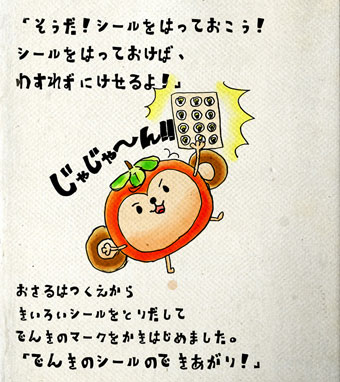 「そうだ！シールをはっておこう！
シールをはっておけば、
わすれずにけせるよ！」
じゃじゃ〜ん!!
おさるはつくえから
きいろいシールをとりだして
でんきのマークをかきはじめました。
「でんきのシールのできあがり！」